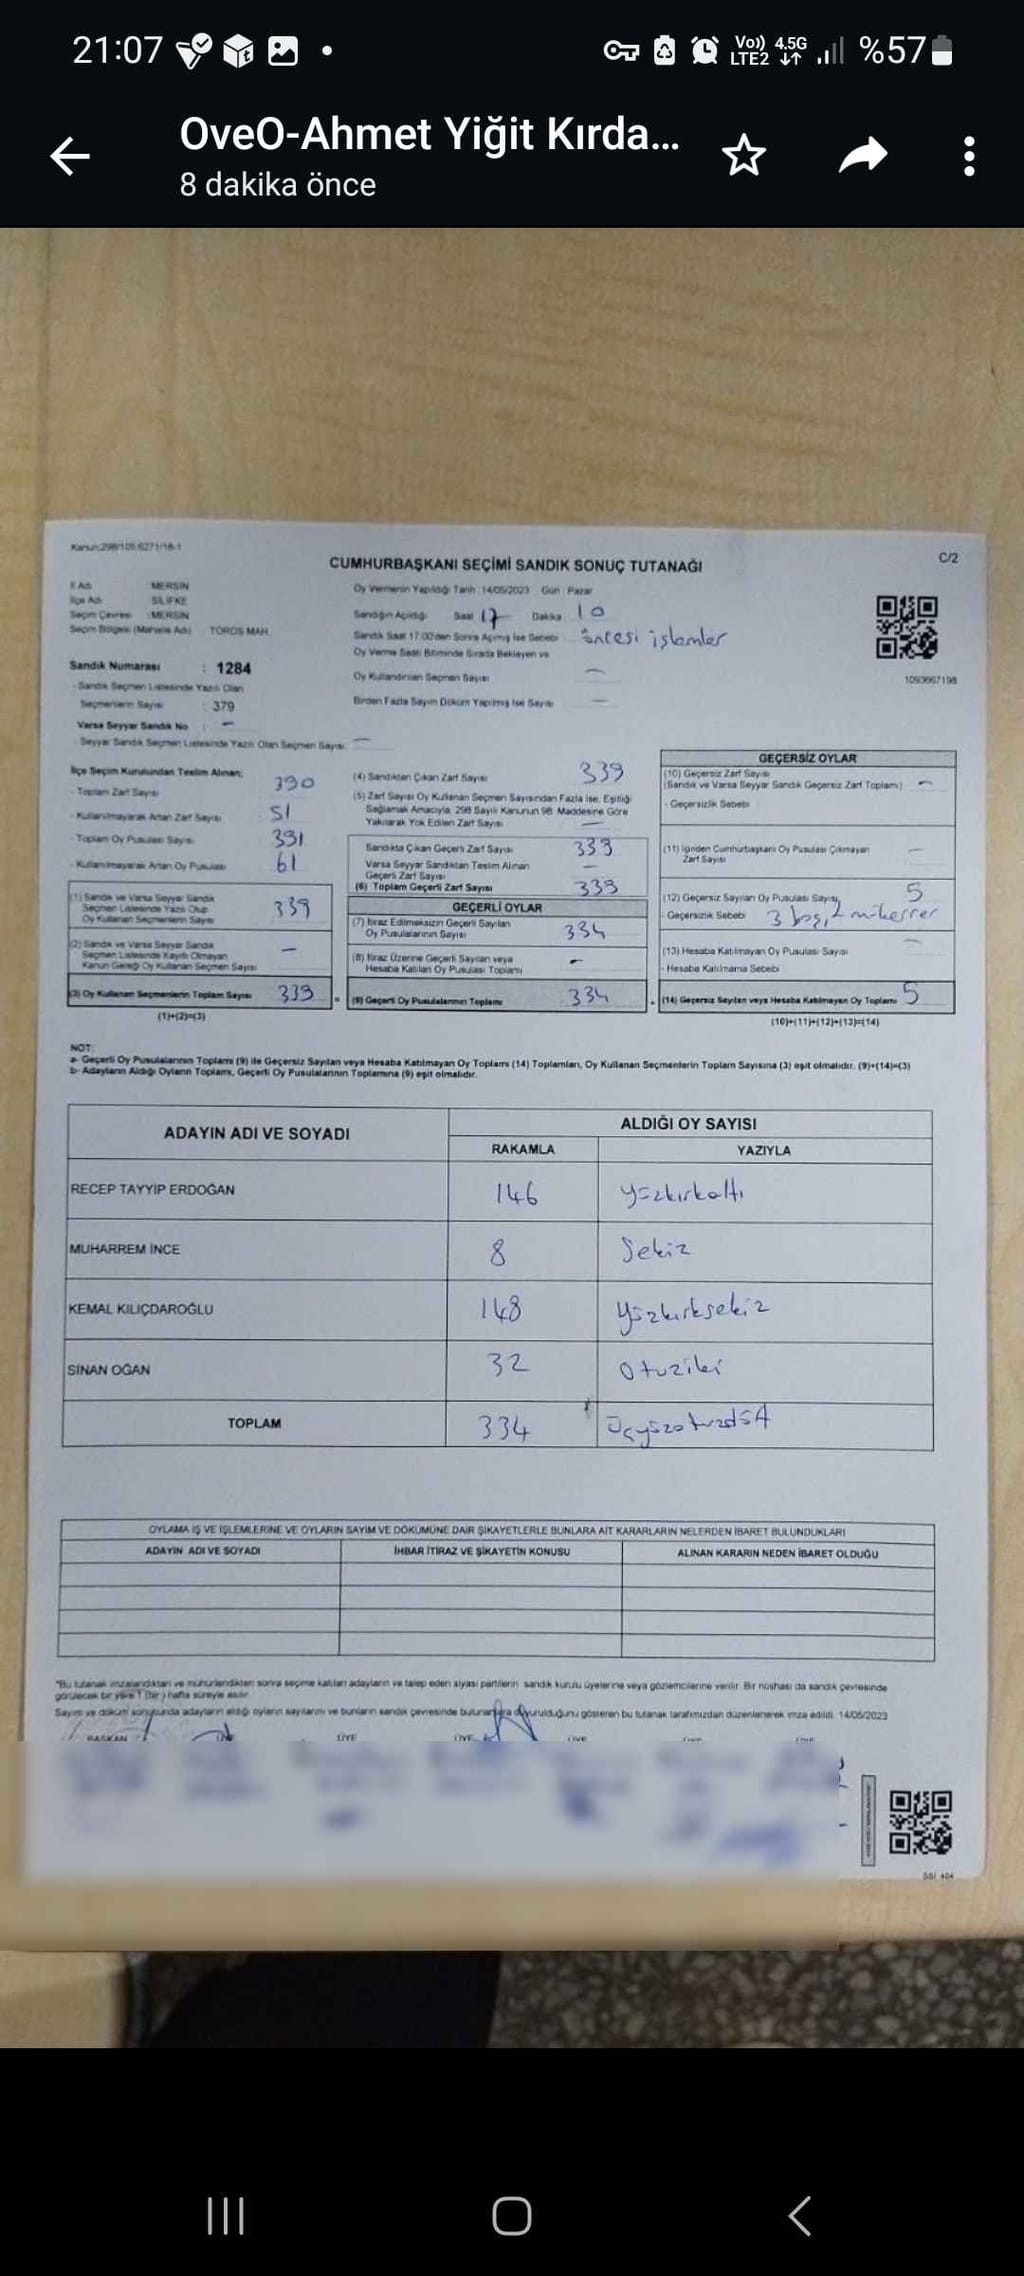 21:07
Vo)) LTE2 4.5G %57
OveO-Ahmet Yiğit Kırda...
8 dakika önce
Kanun:298/105.6271/18-1
C/2
CUMHURBAŞKANI SEÇİMİ SANDIK SONUÇ TUTANAĞI
İl Adı : MERSİN
İlçe Adı : SİLİFKE
Seçim Çevresi : MERSİN
Seçim Bölgesi (Mahalle Adı) TOROS MAH.
Sandık Numarası : 1284
- Sandık Seçmen Listesinde Yazılı Olan
Seçmenlerin Sayısı : 379
Varsa Seyyar Sandık No : -
- Seyyar Sandık Seçmen Listesinde Yazılı Olan Seçmen Sayısı: -
Oy Vermenin Yapıldığı Tarih : 14/05/2023 Gün : Pazar
Sandığın Açıldığı Saat 17 Dakika 10
Sandık Saat 17:00'den Sonra Açılmış İse Sebebi öncesi işlemler
Oy Verme Saati Bitiminde Sırada Bekleyen ve
Oy Kullandırılan Seçmen Sayısı -
Birden Fazla Sayım Döküm Yapılmış İse Sayısı -
1093667198
İlçe Seçim Kurulundan Teslim Alınan;
- Toplam Zarf Sayısı 390
- Kullanılmayarak Artan Zarf Sayısı 51
- Toplam Oy Pusulası Sayısı 391
- Kullanılmayarak Artan Oy Pusulası 61
(1) Sandık ve Varsa Seyyar Sandık
Seçmen Listesinde Yazılı Olup
Oy Kullanan Seçmenlerin Sayısı 339
(2) Sandık ve Varsa Seyyar Sandık
Seçmen Listesinde Kayıtlı Olmayan
Kanun Gereği Oy Kullanan Seçmen Sayısı -
(3) Oy Kullanan Seçmenlerin Toplam Sayısı 339
(1)+(2)=(3)
(4) Sandıktan Çıkan Zarf Sayısı 339
(5) Zarf Sayısı Oy Kullanan Seçmen Sayısından Fazla İse, Eşitliği
Sağlamak Amacıyla, 298 Sayılı Kanunun 98. Maddesine Göre
Yakılarak Yok Edilen Zarf Sayısı -
Sandıkta Çıkan Geçerli Zarf Sayısı 339
Varsa Seyyar Sandıktan Teslim Alınan
Geçerli Zarf Sayısı -
(6) Toplam Geçerli Zarf Sayısı 339
GEÇERLİ OYLAR
(7) İtiraz Edilmeksizin Geçerli Sayılan
Oy Pusulalarının Sayısı 334
(8) İtiraz Üzerine Geçerli Sayılan veya
Hesaba Katılan Oy Pusulası Toplamı -
= (9) Geçerli Oy Pusulalarının Toplamı 334
GEÇERSİZ OYLAR
(10) Geçersiz Zarf Sayısı
(Sandık ve Varsa Seyyar Sandık Geçersiz Zarf Toplamı) -
- Geçersizlik Sebebi
(11) İçinden Cumhurbaşkanı Oy Pusulası Çıkmayan
Zarf Sayısı -
(12) Geçersiz Sayılan Oy Pusulası Sayısı 5
- Geçersizlik Sebebi 3 boş, 2 mükerrer
(13) Hesaba Katılmayan Oy Pusulası Sayısı -
- Hesaba Katılmama Sebebi
(14) Geçersiz Sayılan veya Hesaba Katılmayan Oy Toplamı 5
(10)+(11)+(12)+(13)=(14)
NOT:
a- Geçerli Oy Pusulalarının Toplamı (9) ile Geçersiz Sayılan veya Hesaba Katılmayan Oy Toplamı (14) Toplamları, Oy Kullanan Seçmenlerin Toplam Sayısına (3) eşit olmalıdır. (9)+(14)=(3)
b- Adayların Aldığı Oyların Toplamı, Geçerli Oy Pusulalarının Toplamına (9) eşit olmalıdır.
ADAYIN ADI VE SOYADI
ALDIĞI OY SAYISI
RAKAMLA YAZIYLA
RECEP TAYYİP ERDOĞAN 146 yüzkırkaltı
MUHARREM İNCE 8 Sekiz
KEMAL KILIÇDAROĞLU 148 yüzkırksekiz
SİNAN OĞAN 32 otuziki
TOPLAM 334 üçyüzotuzdört
OYLAMA İŞ VE İŞLEMLERİNE VE OYLARIN SAYIM VE DÖKÜMÜNE DAİR ŞİKAYETLERLE BUNLARA AİT KARARLARIN NELERDEN İBARET BULUNDUKLARI
ADAYIN ADI VE SOYADI İHBAR İTİRAZ VE ŞİKAYETİN KONUSU ALINAN KARARIN NEDEN İBARET OLDUĞU
*Bu tutanak imzalandıktan ve mühürlendikten sonra seçime katılan adayların ve talep eden siyasi partilerin sandık kurulu üyelerine veya gözlemcilerine verilir. Bir nüshası da sandık çevresinde
görülecek bir yere 1 (bir) hafta süreyle asılır.
Sayım ve döküm sonucunda adayların aldığı oyların sayılarını ve bunların sandık çevresinde bulunanlara duyurulduğunu gösteren bu tutanak tarafımızdan düzenlenerek imza edildi. 14/05/2023
BAŞKAN ÜYE ÜYE ÜYE
404